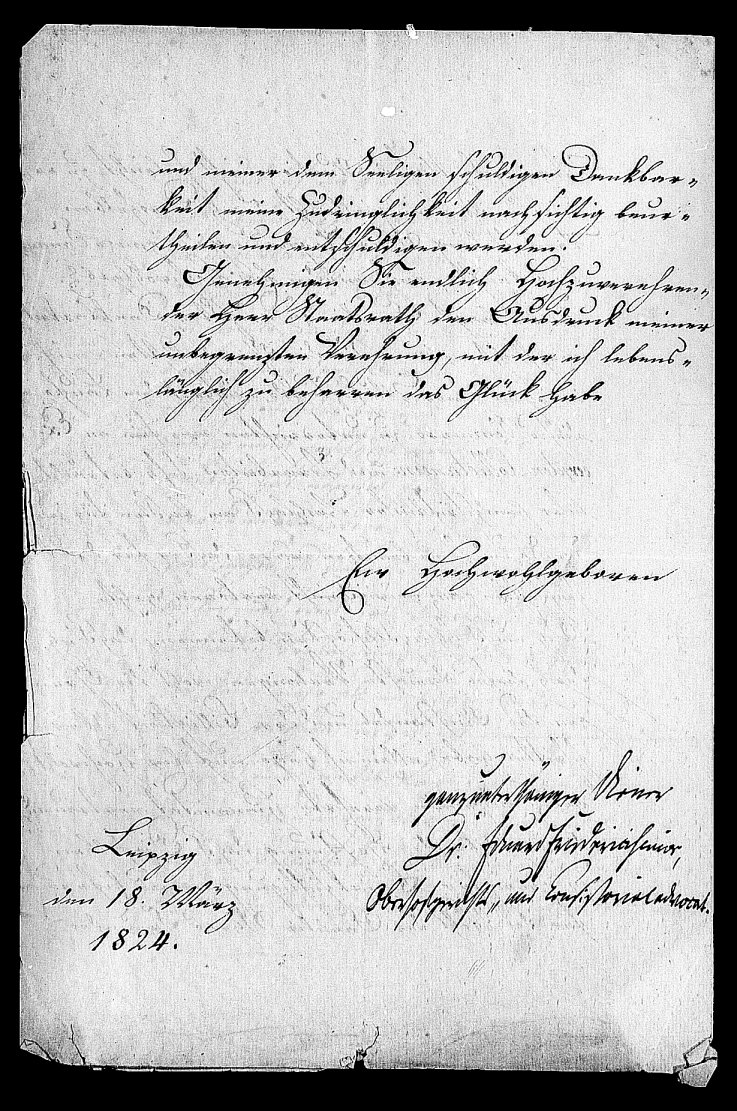 und meiner dem Seeligen schuldigen Dankbar-
keit meine Zudringlichkeit nachsichtig beur-
theilen und entschuldigen werden.
Genehmigen Sie endlich Hochzuverehren-
der Herr Staatsrath den Ausdruck meiner
unbegrenzten Verehrung, mit der ich lebens-
länglich zu beharren das Glück habe
Ew Hochwohlgeboren
ganz unterthäniger Diener
Dr. Eduard Friederici
Leipzig
Oberhofgerichts- und Consistorialadvocat.
den 18. März
1824.